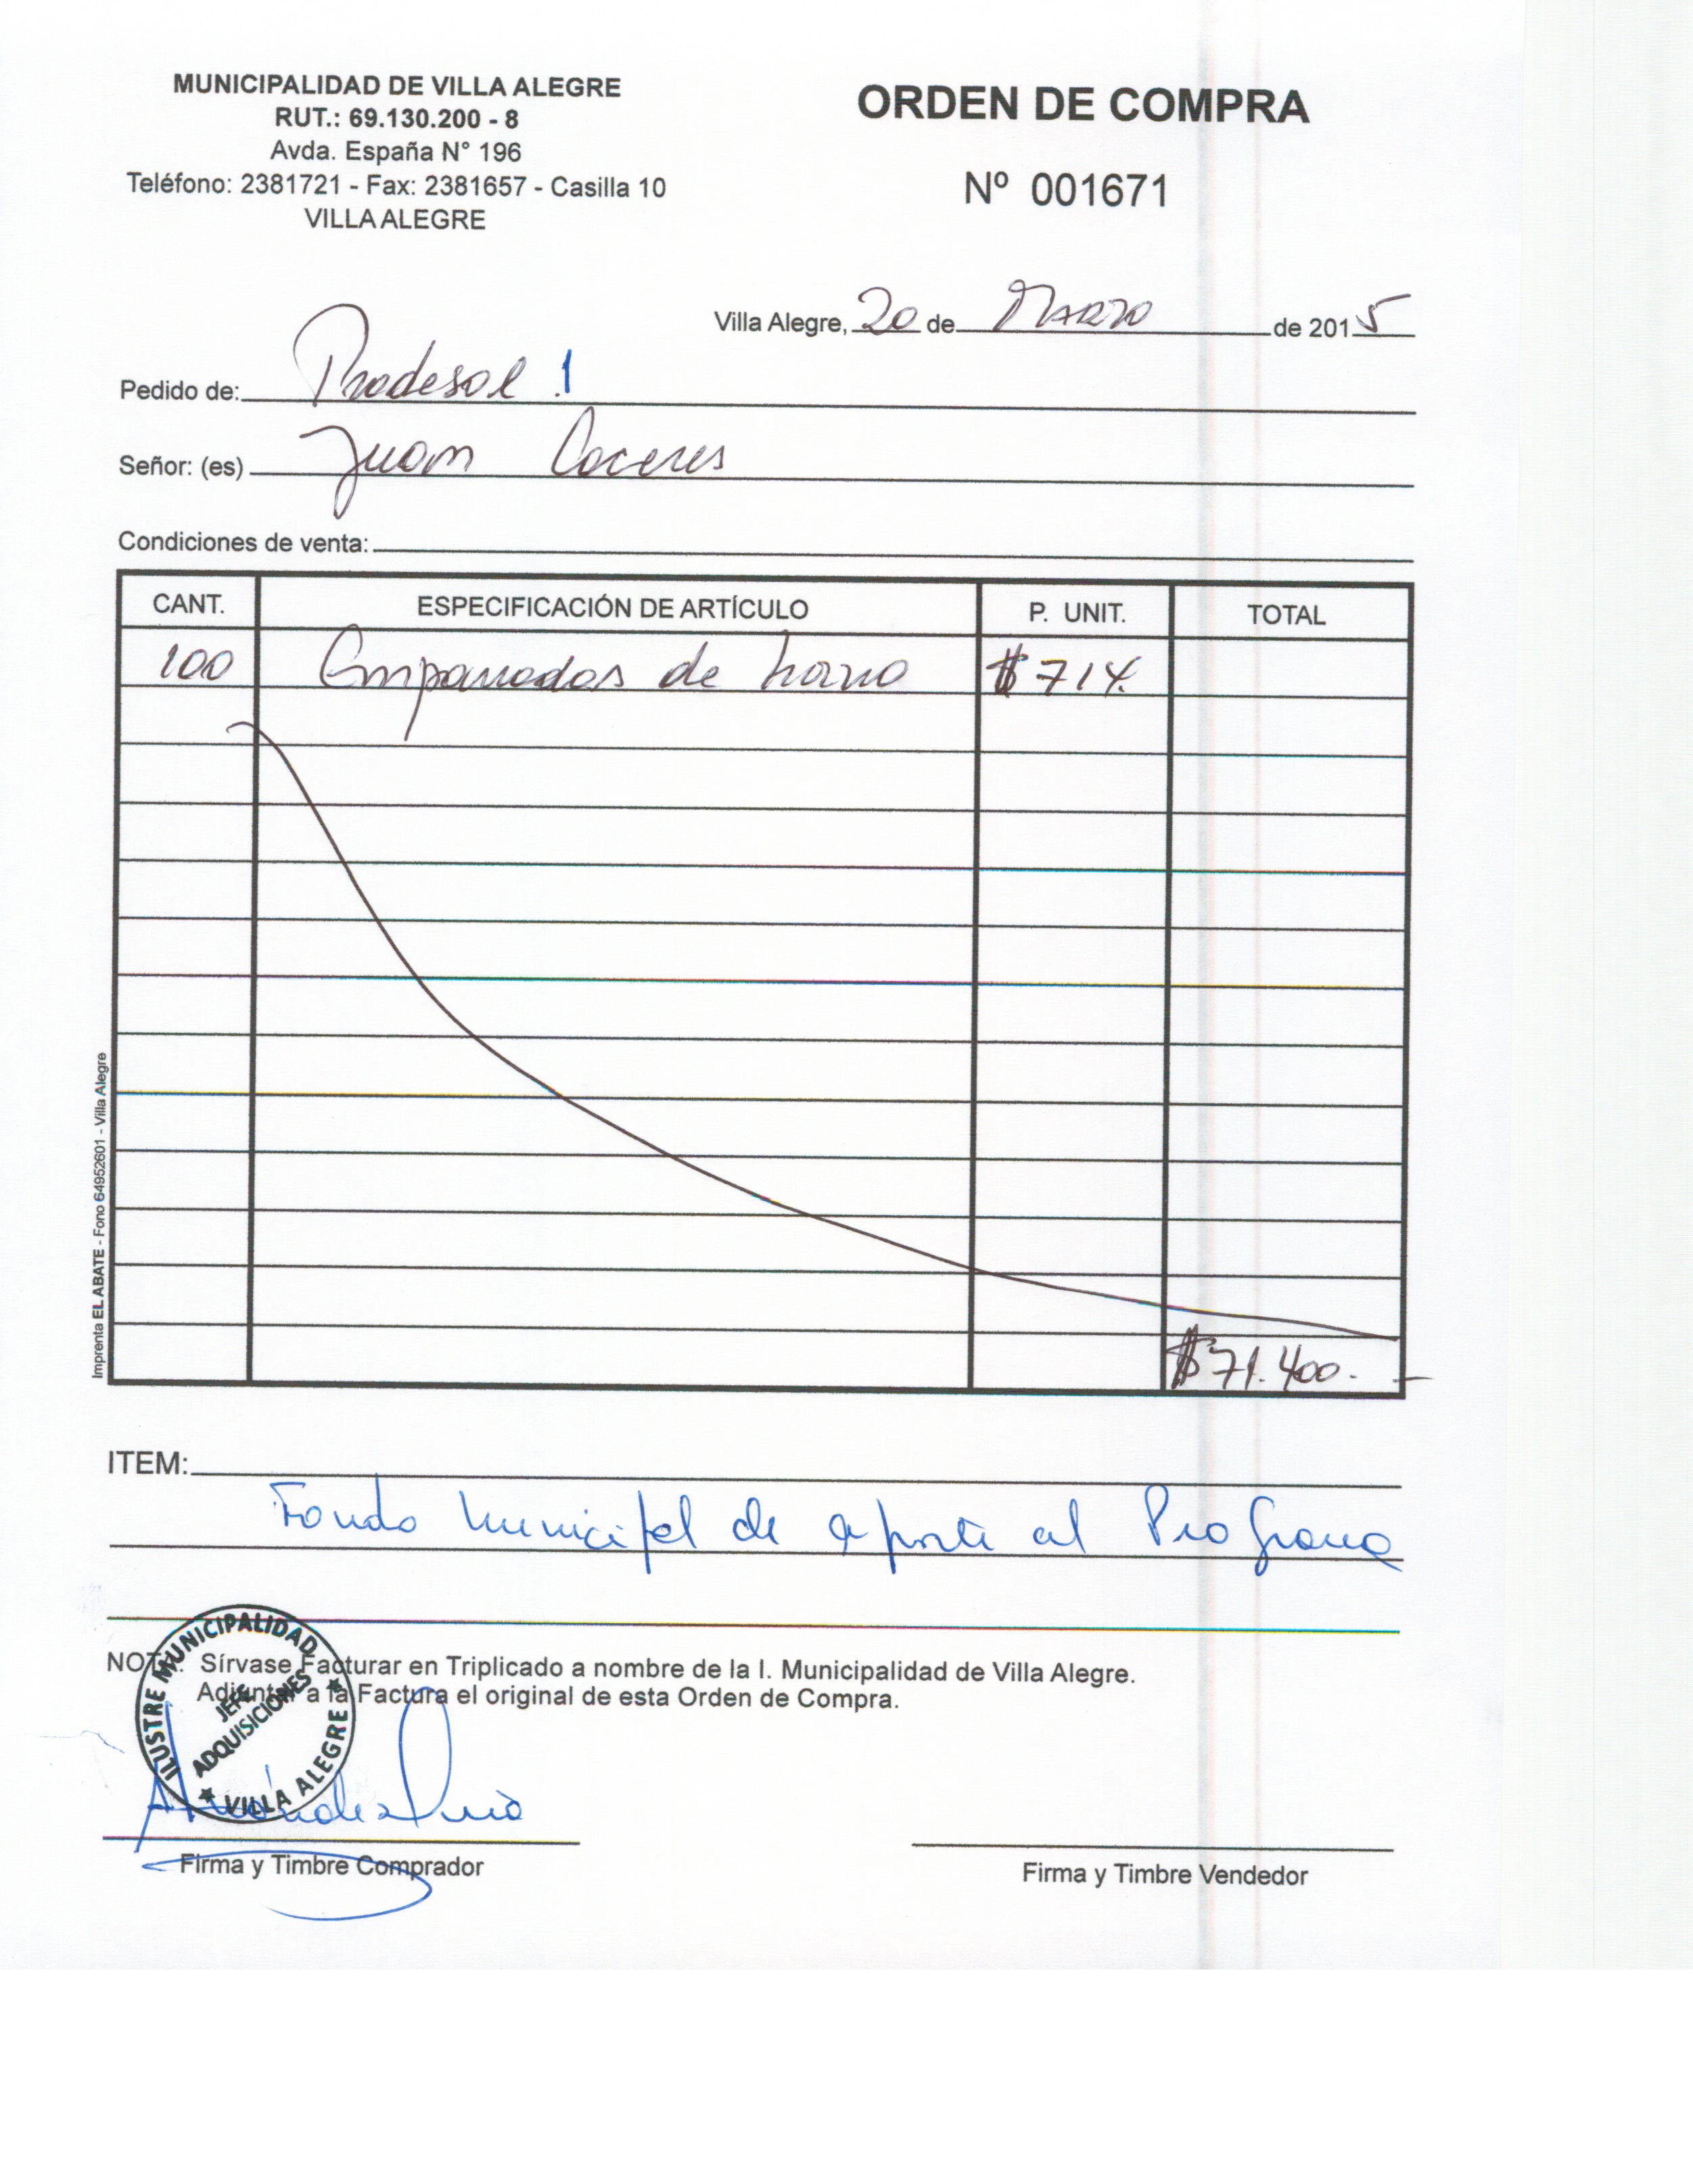 MUNICIPALIDAD DE VILLA ALEGRE
RUT.: 69.130.200 - 8
Avda. España N° 196
Teléfono: 2381721 - Fax: 2381657 - Casilla 10
VILLA ALEGRE
ORDEN DE COMPRA
Nº 001671
Villa Alegre, 20 de Marzo de 2015
Pedido de: Prodesal 1
Señor: (es) Juan Caceres
Condiciones de venta:
CANT. ESPECIFICACIÓN DE ARTÍCULO P. UNIT. TOTAL
100 Empanadas de horno $714.
$71.400.-
Imprenta EL ABATE - Fono 64952601 - Villa Alegre
ITEM:
Fondo Municipal de aporte al Programa
NOTA: Sírvase Facturar en Triplicado a nombre de la I. Municipalidad de Villa Alegre.
Adjuntar a la Factura el original de esta Orden de Compra.
ILUSTRE MUNICIPALIDAD
JEFE
ADQUISICIONES
★ VILLA ALEGRE ★
Firma y Timbre Comprador
Firma y Timbre Vendedor